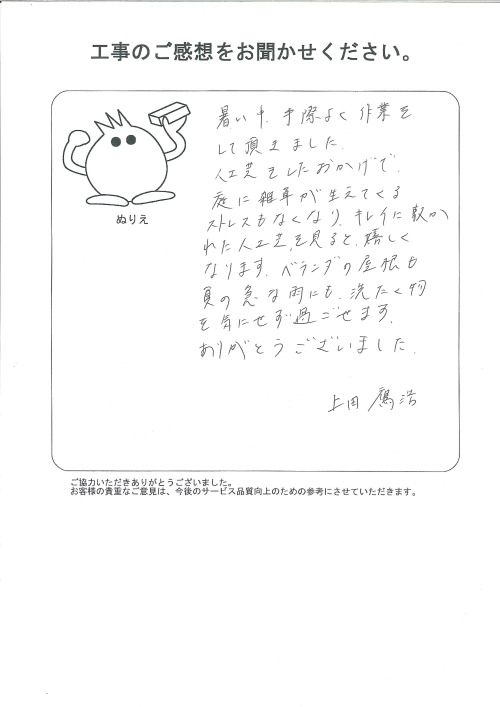 工事のご感想をお聞かせください。
ぬりえ
暑い中、手際よく作業を
して頂きました。
人工芝をしたおかげで、
庭に雑草が生えてくる
ストレスもなくなり、キレイに敷か
れた人工芝を見ると、嬉しく
なります。ベランダの屋根も
夏の急な雨にも、洗たく物
を気にせず過ごせます。
ありがとうございました。
上田 鷹浩
ご協力いただきありがとうございました。
お客様の貴重なご意見は、今後のサービス品質向上のための参考にさせていただきます。